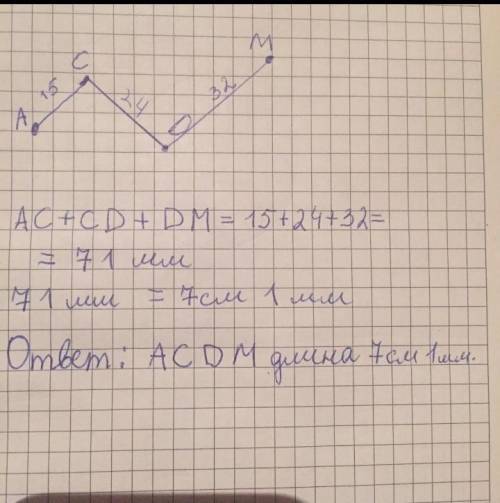 M
C
A 15 24 D 32
AC+CD+DM=15+24+32=
=71 мм
71 мм = 7см 1 мм
Ответ: ACDM длина 7см 1мм.